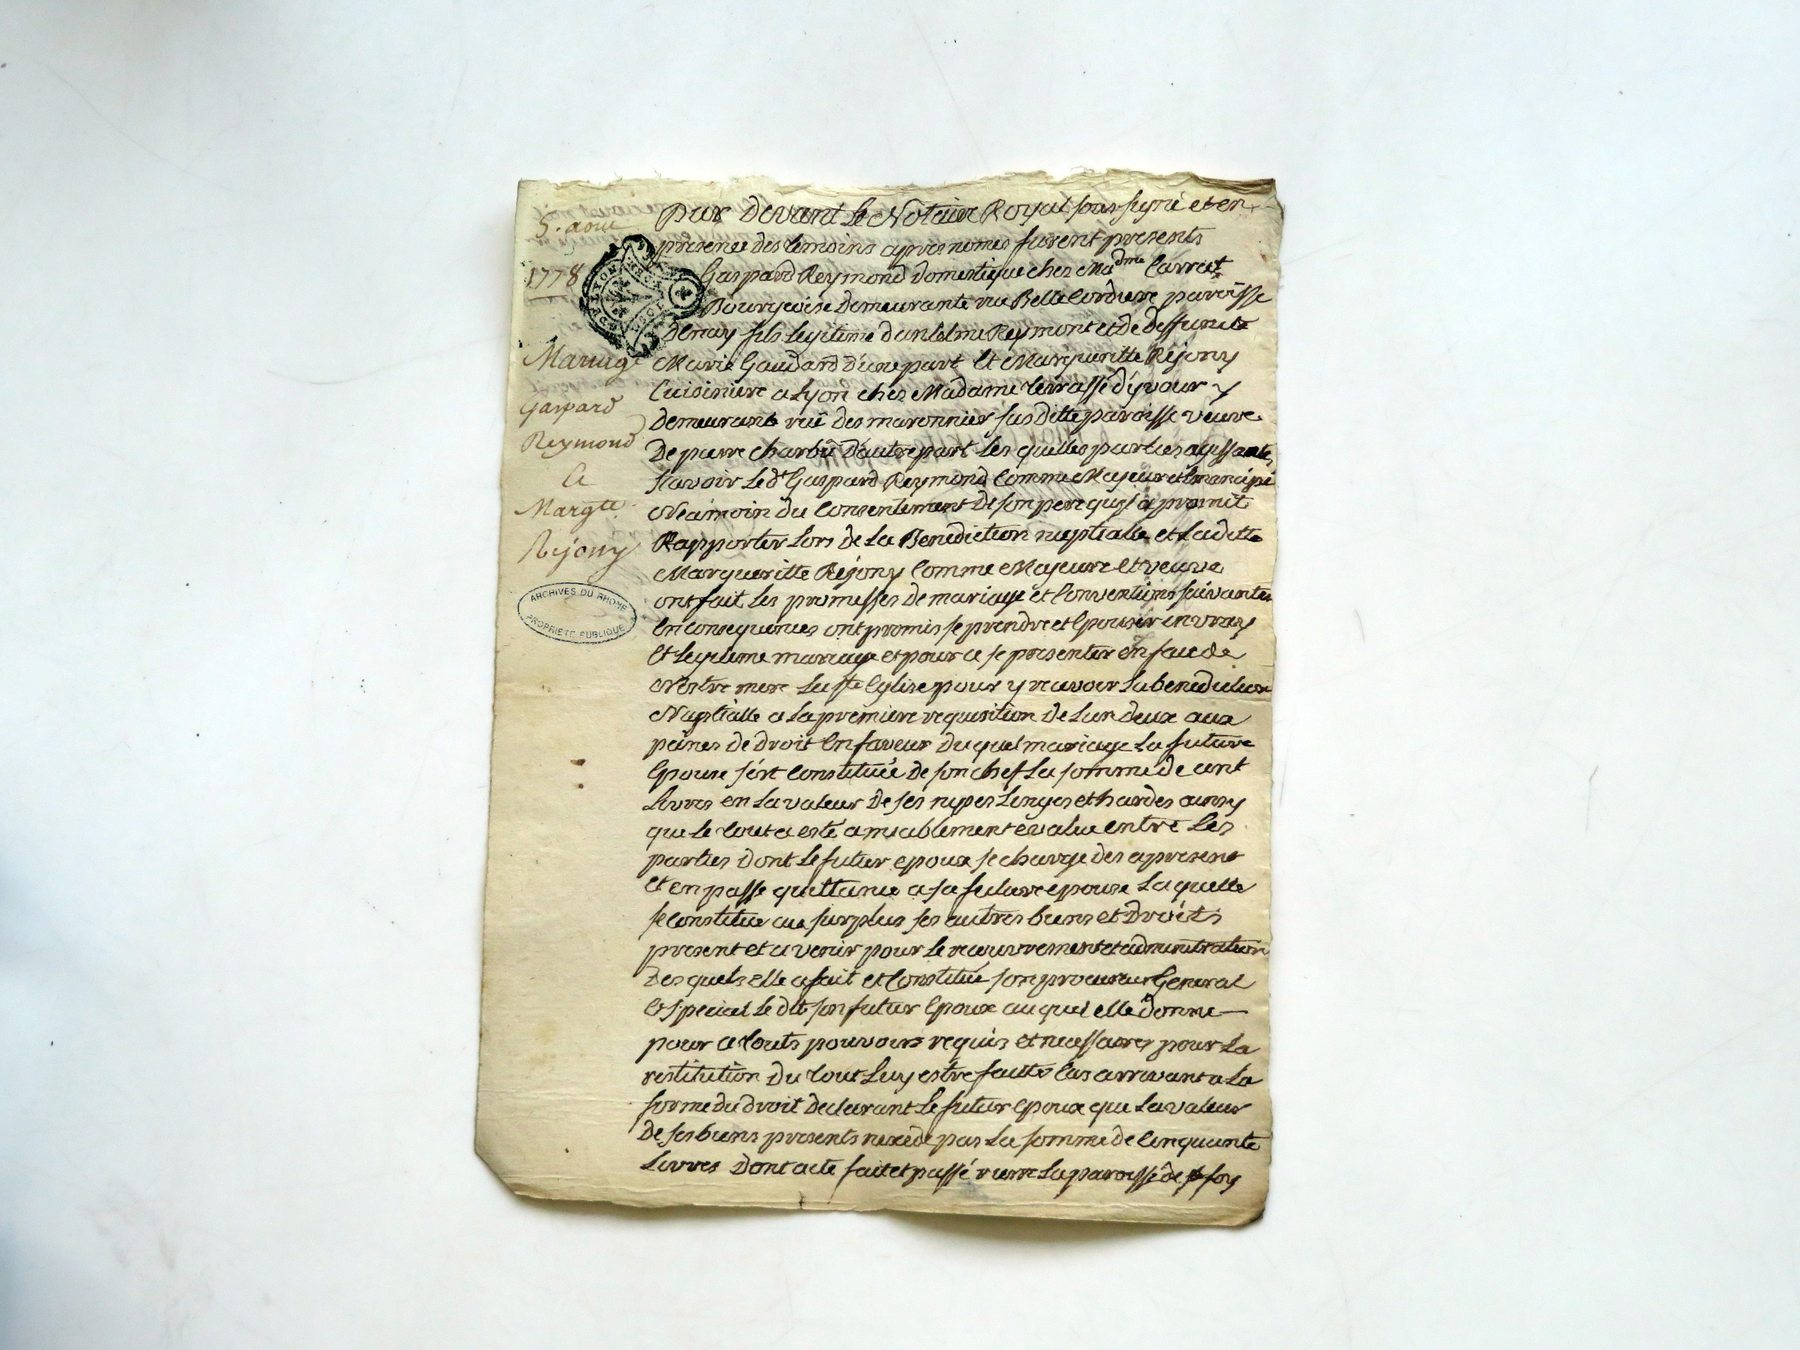 5. aout
1778
Mariage
Gaspard
Reymond
a
Margte
Rejony
ARCHIVES DU RHONE
PROPRIETE PUBLIQUE
par devant le Notaire Royal sous signé et en
presence des temoins apres nomes furent presents
Gaspard Reymond domestique chez Madme Carret
Bourgeoise demeurante rue Belle Cordiere paroisse
denay fils legitime danselme Reymont et de deffunte
Marie Gaudard d'une part Et Margueritte Rejony
Cuisiniere a Lyon chez Madame terrasse d'yvour y
demeurante ruë des maronnier sus ditte paroisse veuve
de pierre charbu d'autre part les quelles parties agissantes
scavoir le dt Gaspard Reymond Comme Majeur et Emancipé
Neámoin du Consentement de son pere quil a promit
Rapporter lors de la Benediction nuptialle et ladette
Margueritte Rejony Comme Majeure et veuve
ont fait les promesses de mariage et Conventions suivantes
En consequences ont promis se prendre et Epouser en vray
Et legitime mariage et pour ce se presenter en face de
Nostre mere la ste Eglise pour y recevoir la benediction
Nuptialle a la premiere requisition de lun deux aux
peines de droit En faveur du quel mariage la future
Epouse s'est Constituée de son chef la somme de cent
livres en la valeur de ses nipes linges et hardes ainsy
que le tout a esté amiablement evalué entre les
parties dont le futur epoux se charge des apresent
et en passe quittance a sa future epouse la quelle
se constitue au surplus ses autres biens et droits
present et a venir pour le recouvrement et administration
des quels elle a fait et Constitué son procureur General
& special le dit son futur Epoux au quel elle donne
pour ce touts pouvoirs requis et necessaires pour la
restitution du tout luy estre faitte Cas arrivant a la
forme du droit declarant le futur epoux que la valeur
de ses biens presents nexede pas la somme de Cinquante
livres dont acte fait et passé riere la paroisse de foy